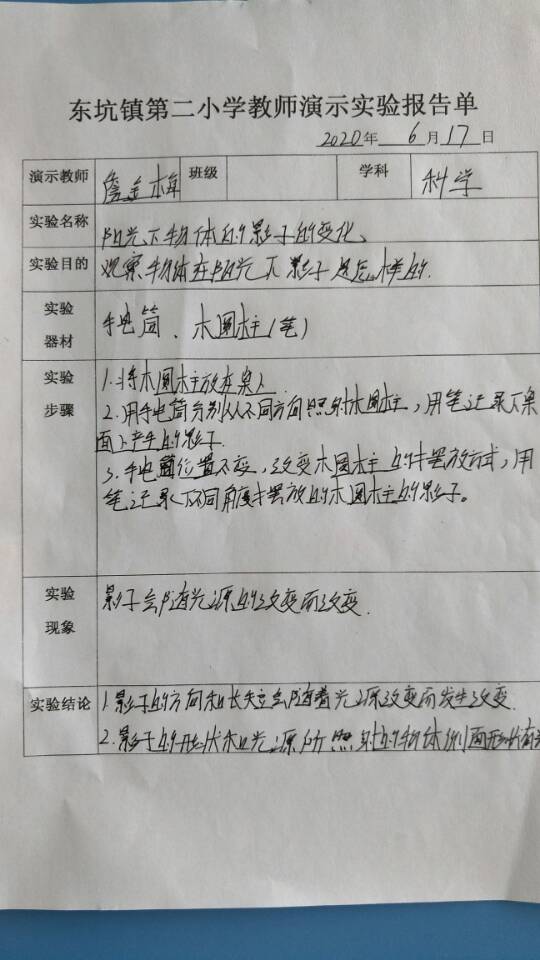 东坑镇第二小学教师演示实验报告单
2020年 6月17日
演示教师 詹金梅 班级 学科 科学
实验名称 阳光下物体的影子的变化、
实验目的 观察物体在阳光下影子是怎样的.
实验器材 手电筒、木圆柱(笔)
实验步骤 1.将木圆柱放在桌上
2.用手电筒分别从不同方向照射木圆柱,用笔记录下桌
面上产生的影子.
3.手电筒位置不变,改变木圆柱的摆放方式,用
笔记录下不同角度摆放的木圆柱的影子。
实验现象 影子会随光源的改变而改变.
实验结论 1.影子的方向和长短会随着光源改变而发生改变.
2.影子的形状和光源所照射的物体侧面形状有关